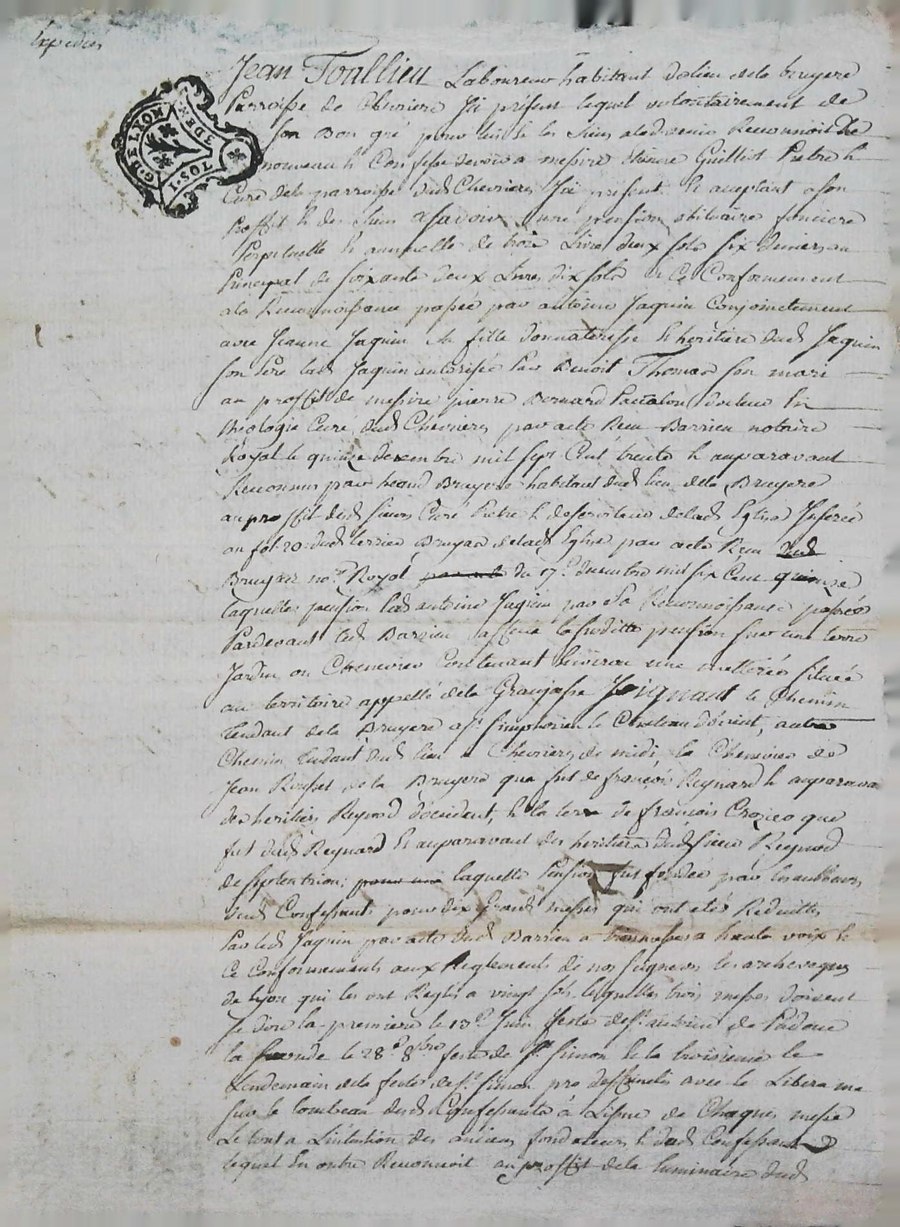 Expediés
G. DE LYON
SOL
DEN
Jean Toallieu Laboureur habitant du lieu de la bruyere
Parroisse de Chevriere Ici présent lequel volontairement de
son Bon gré pour lui & les siens a ladvenir Reconnoit de
nouveau & Confesse devoir a messire étienne Guilliot Pretre &
Curé de la parroisse dud Chevrieres Ici présent & acceptant a son
Proffit & des siens a Savoir une pension obituaire fonciere
Perpetuelle & annuelle de trois Livres deux sols six deniers au
Principal de soixante deux Livres dix sols & Ce Conformement
a la Reconnoissance passée par antoine Jaquin Conjointement
avec Jeanne Jaquin sa fille donnateresse & héritiere dud Jaquin
son Pere lad Jaquin autorisée Par Benoit Thomas son mari
au proffit de messire pierre Bernard Pactalon docteur En
théologie Curé dud Chevrieres par acte Reçu Barrieu notaire
Royal le quinze decembre mil sept Cent trente & auparavant
Reconnus par Bruyere habitant dud lieu de la Bruyere
au proffit dud sieur Curé Pretre & deserviteur de lad Eglise Inserée
au fol. 20 dud terrier Bruyas de lad Eglise par acte Reçu dud
Bruyas no.re Royal du 17.e decembre mil six Cent quinze
laquelle pension led antoine Jaquin par sa Reconnoissance passée
Pardevant led Barrieu assena la suditte pension sur une terre
Jardin ou Chenevier Contenant Environ une metterée située
au territoire appellé de la Grangeasse Joignant le Chemin
tendant de la Bruyere a s.t simphorien le Chateau d'orient, autre
Chemin tendant dud lieu a Chevrieres de midi, la Chenevier de
Jean Rousset de la Bruyere que fut de françois Reynard & auparavant
des heritiers Reynod d'occident, & la terre de françois Crozier que
fut dud Reynard & auparavant des heritiers dud sieur Reynod
de septentrion; laquelle Pension fut fondée par les autheurs
dud Confessant pour dix Grands messes qui ont étés Reduittes
Par led Jaquin par acte dud Barrieu a trois messes a haute voix &
Ce Conformement aux Reglements de nos seigneurs les archeveques
de Lyon qui les ont Reglés a vingt sols lesquelles trois messes doivent
Se dire la premiere le 13.e Juin feste de s.t antoine de Padoue
la seconde le 28.e 8bre feste de s.t Simon & la troisieme le
Lendemain de la feste de s.t Simon pro deffunctis avec le Libera me
sur le tombeau dud Confessant à L'issue de Chaque messe
Le tout a L'intention des anciens fondateurs & dud Confessant
lequel En outre Reconnoit au proffit de la luminaire dud